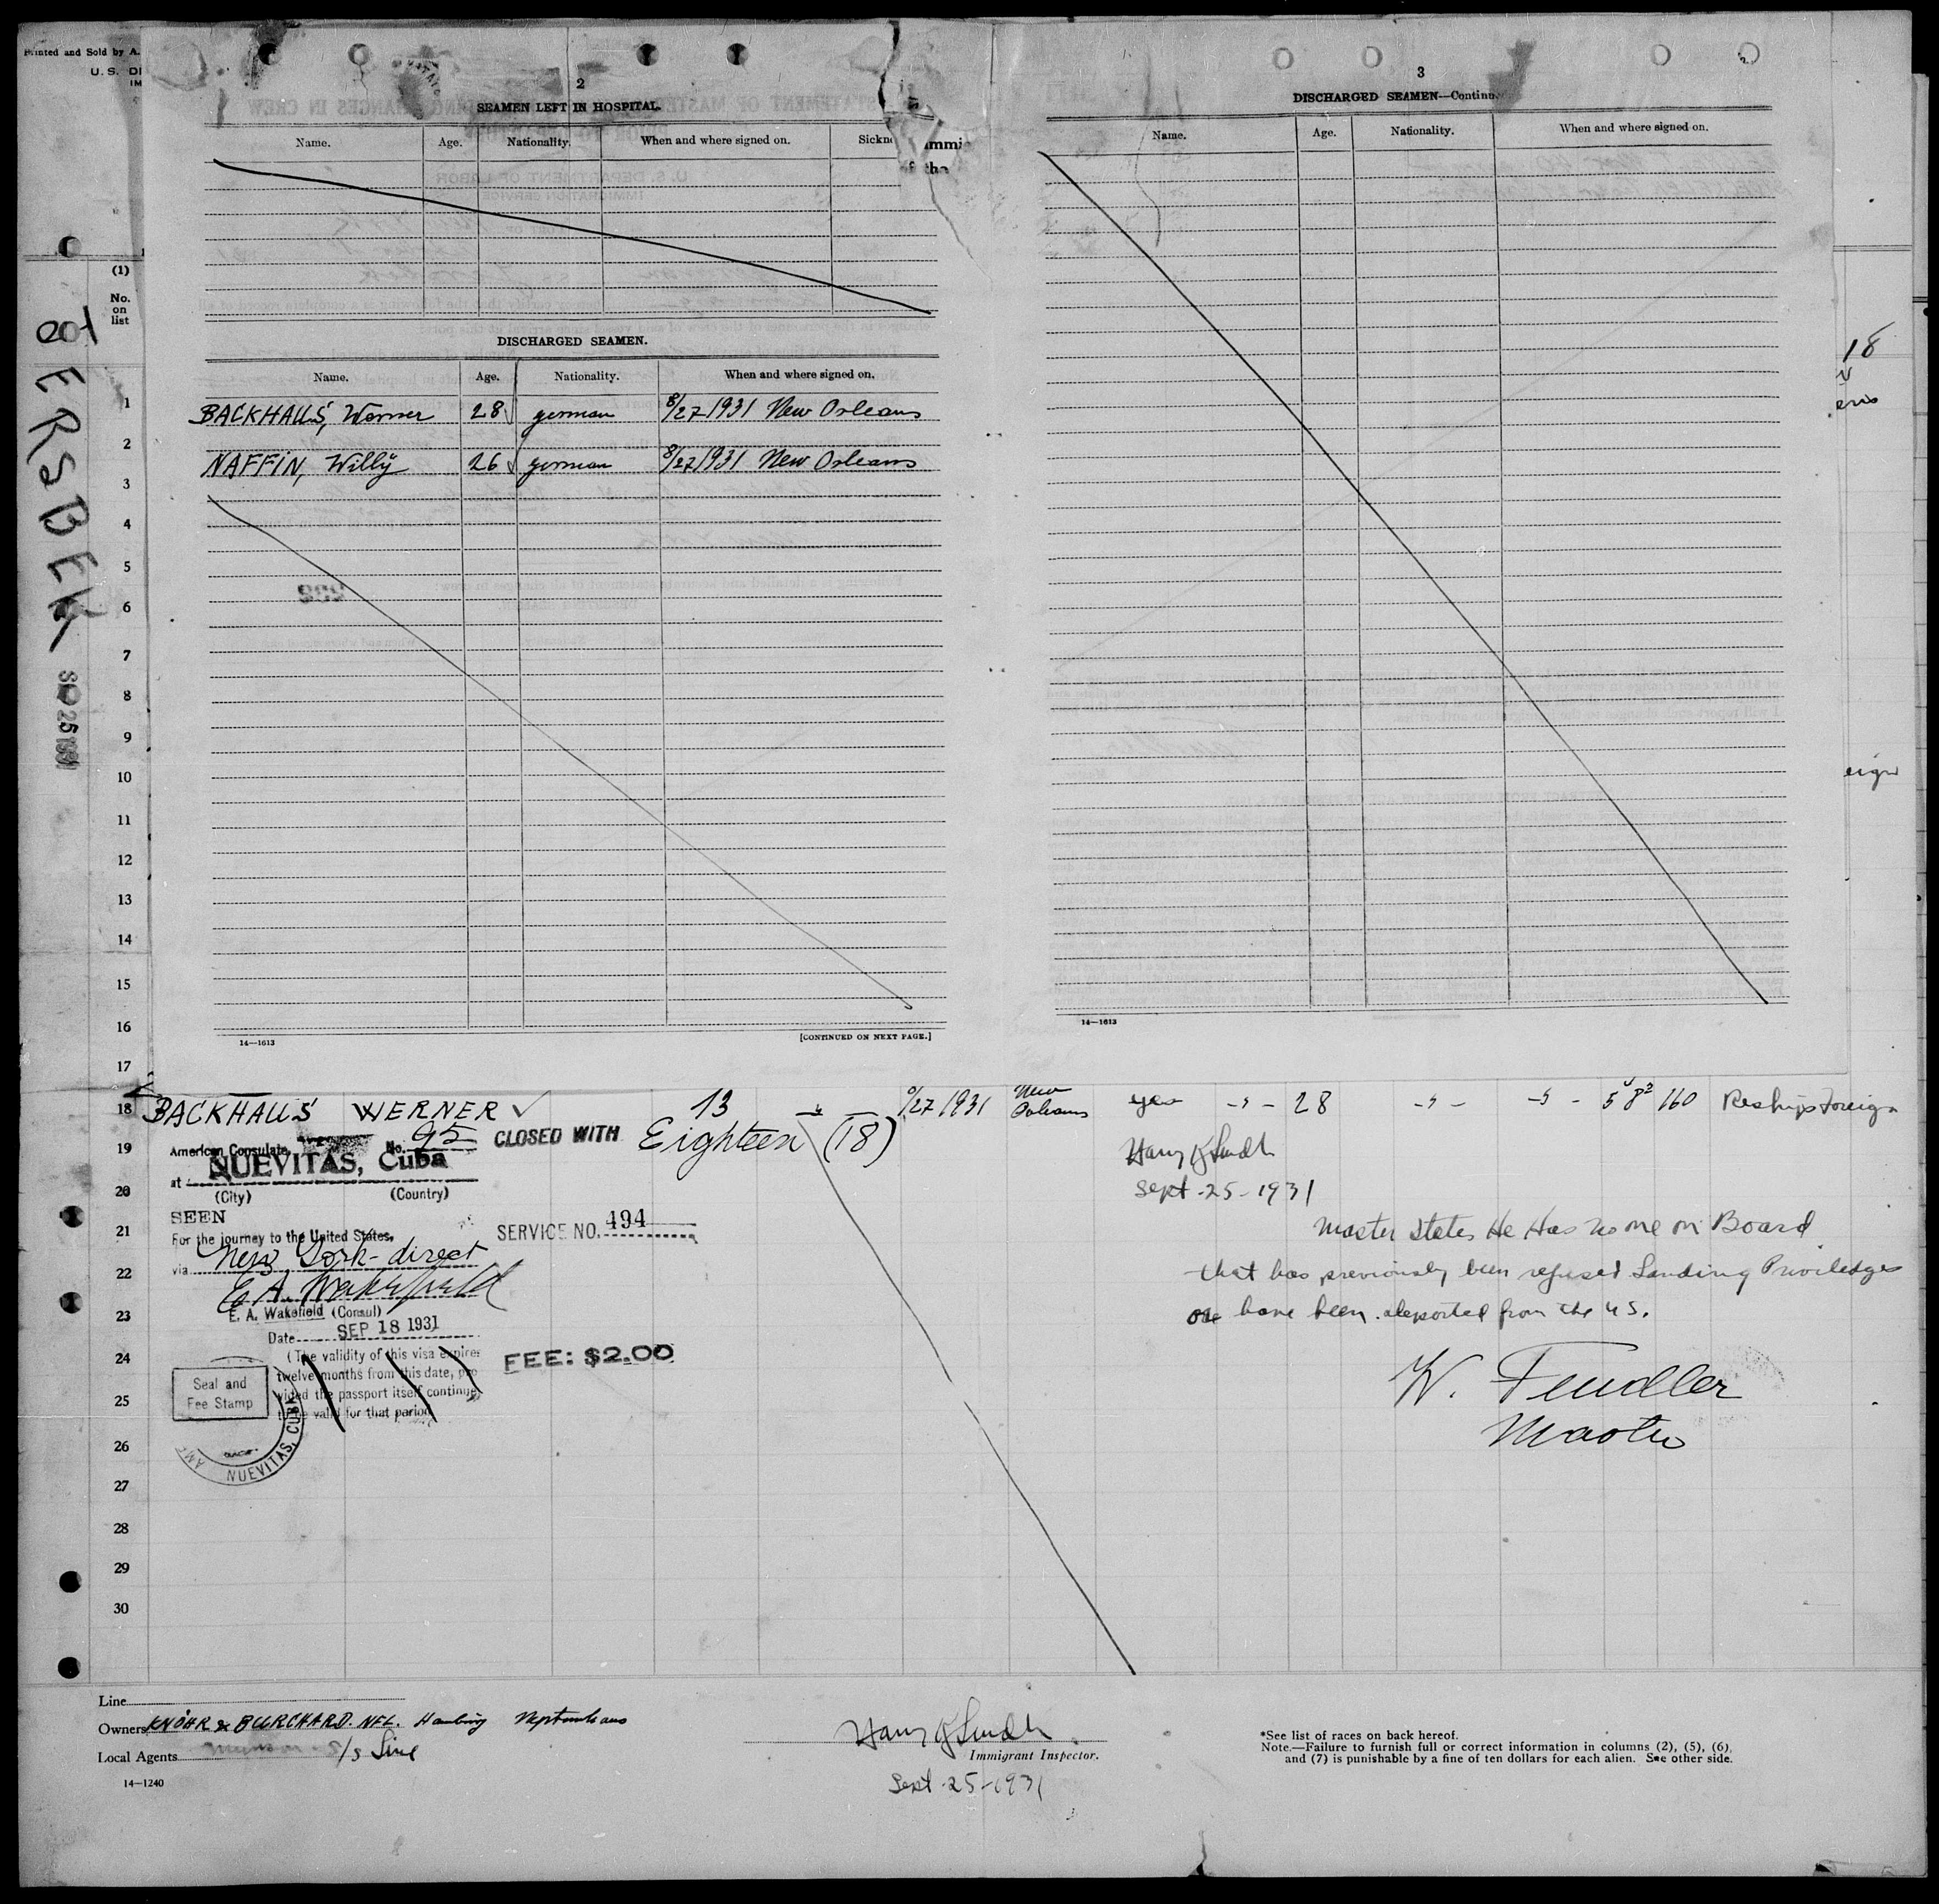 Printed and Sold by A.
U. S.
2
SEAMEN LEFT IN HOSPITAL.
Name. Age. Nationality. When and where signed on.
DISCHARGED SEAMEN.
Name. Age. Nationality. When and where signed on.
BACKHAUS, Werner 28 german 8/27/1931 New Orleans
NAFFIN, Willy 26 german 8/27/1931 New Orleans
14—1613 [CONTINUED ON NEXT PAGE.]
3
DISCHARGED SEAMEN—Continu
Name. Age. Nationality. When and where signed on.
14—1613
(1)
No.
on
list
1
2
3
4
5
6
7
8
9
10
11
12
13
14
15
16
17
18 BACKHAUS WERNER 13 /27/1931 New Orleans yes 28 5 8 160 Reships Foreign
19
20
21
22
23
24
25
26
27
28
29
30
ERSBEK
25 1931
American Consulate, No. 95
at NUEVITAS, Cuba
(City) (Country)
SEEN
For the journey to the United States,
via New York-direct
E. A. Wakefield
E. A. Wakefield (Consul)
Date SEP 18 1931
(The validity of this visa expires
twelve months from this date, pro
vided the passport itself continues
to be valid for that period
Seal and
Fee Stamp
NUEVITAS, CUBA
CLOSED WITH Eighteen (18)
SERVICE NO. 494
FEE: $2.00
Sept-25-1931
Master States He Has no one on Board
that has previously been refused Landing Priviledges
or have been deported from the U S.
W. Fendler
Master
Line
Owners KNÖHR & BURCHARD. NFL. Hamburg Neptunhaus
Local Agents S/S Line
14—1240
Immigrant Inspector.
Sept-25-1931
*See list of races on back hereof.
Note.—Failure to furnish full or correct information in columns (2), (5), (6),
and (7) is punishable by a fine of ten dollars for each alien. See other side.